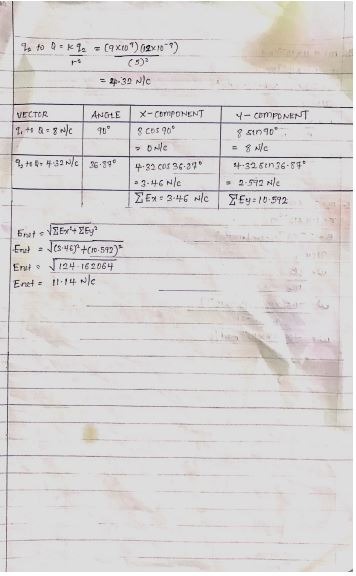 q₂ to Q = k q₂ = (9x10⁹)(12x10⁻⁹)
r² (5)²
= 4.32 N/C
VECTOR ANGLE X-COMPONENT Y-COMPONENT
q₁ to Q = 8 N/C 90° 8 cos 90° 8 sin 90°
= 0 N/C = 8 N/C
q₂ to Q = 4.32 N/C 36.87° 4.32 cos 36.87° 4.32 sin 36.87°
= 3.46 N/C = 2.592 N/C
ΣEx = 3.46 N/C ΣEy = 10.592
Enet = √ΣEx² + ΣEy²
Enet = √(3.46)² + (10.592)²
Enet = √124.162064
Enet = 11.14 N/C